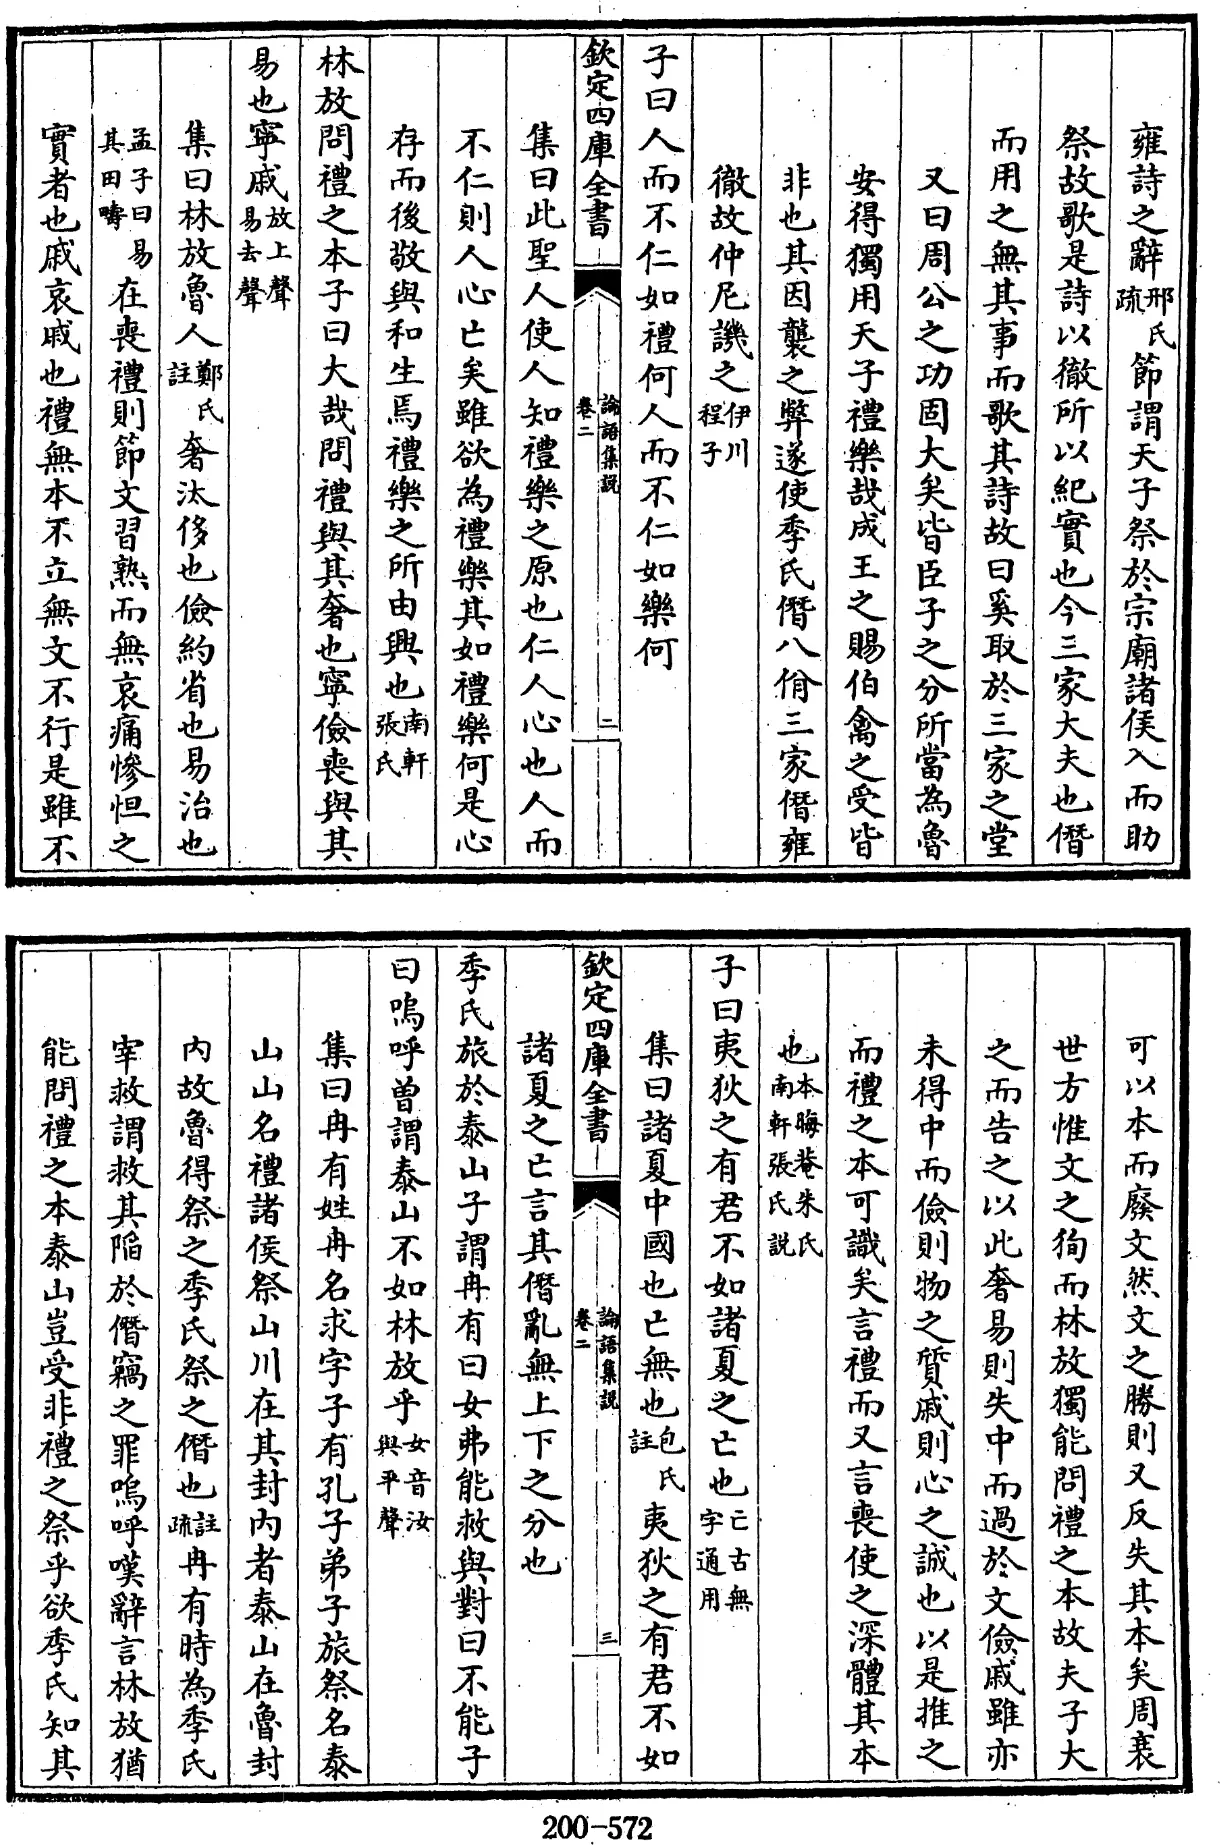 雍詩之辭邢氏疏節謂天子祭於宗廟諸侯入而助
祭故歌是詩以徹所以紀實也今三家大夫也僭
而用之無其事而歌其詩故曰奚取於三家之堂
又曰周公之功固大矣皆臣子之分所當為魯
安得獨用天子禮樂哉成王之賜伯禽之受皆
非也其因襲之弊遂使季氏僭八佾三家僭雍
徹故仲尼譏之伊川程子
子曰人而不仁如禮何人而不仁如樂何
欽定四庫全書 論語集說 卷二 二
集曰此聖人使人知禮樂之原也仁人心也人而
不仁則人心亡矣雖欲為禮樂其如禮樂何是心
存而後敬與和生焉禮樂之所由興也南軒張氏
林放問禮之本子曰大哉問禮與其奢也寧儉喪與其
易也寧戚放上聲易去聲
集曰林放魯人鄭氏註奢汰侈也儉約省也易治也
孟子曰易其田疇在喪禮則節文習熟而無哀痛慘怛之
實者也戚哀戚也禮無本不立無文不行是雖不
可以本而廢文然文之勝則又反失其本矣周衰
世方惟文之徇而林放獨能問禮之本故夫子大
之而告之以此奢易則失中而過於文儉戚雖亦
未得中而儉則物之質戚則心之誠也以是推之
而禮之本可識矣言禮而又言喪使之深體其本
也本晦菴朱氏南軒張氏說
子曰夷狄之有君不如諸夏之亡也亡古無字通用
集曰諸夏中國也亡無也包氏註夷狄之有君不如
欽定四庫全書 論語集說 卷二 三
諸夏之亡言其僭亂無上下之分也
季氏旅於泰山子謂冉有曰女弗能救與對曰不能子
曰嗚呼曾謂泰山不如林放乎女音汝與平聲
集曰冉有姓冉名求字子有孔子弟子旅祭名泰
山山名禮諸侯祭山川在其封內者泰山在魯封
內故魯得祭之季氏祭之僭也註疏冉有時為季氏
宰救謂救其陷於僭竊之罪嗚呼嘆辭言林放猶
能問禮之本泰山豈受非禮之祭乎欲季氏知其
200-572